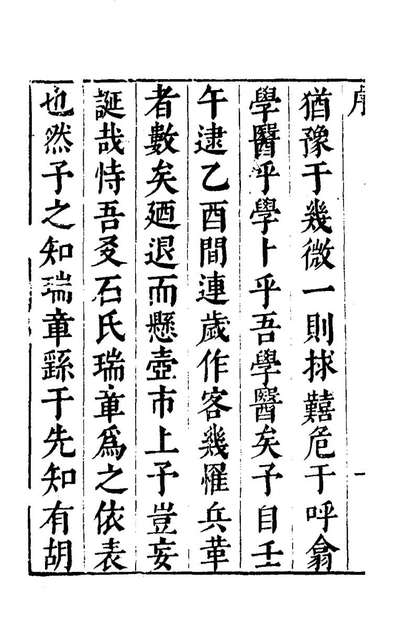 序
一
猶豫于幾微一則捄囏危于呼翕
學醫乎學卜乎吾學醫矣予自壬
午逮乙酉間連歲作客幾罹兵革
者數矣廼退而懸壺市上予豈妄
誕哉恃吾友石氏瑞章爲之依表
也然予之知瑞章繇于先知有胡